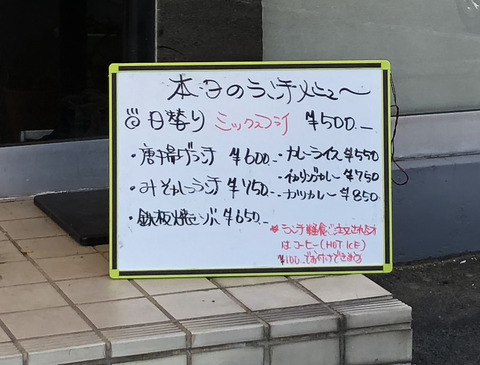 本日のランチメニュー
◎日替り ミックスフライ ¥500.-
・唐揚げランチ ¥600.-
・カレーライス ¥550
・みそカツランチ ¥750.-
・カレー ¥750
・鉄板焼そば ¥650.-
・カツカレー ¥850
※ランチ軽食ご注文される方
はコーヒー(HOT ICE)
¥100でお付けできます